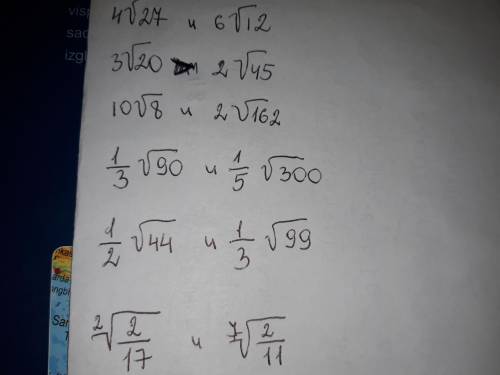 visp
sad
izgl
4√27 и 6√12
3√20 и 2√45
10√8 и 2√162
1/3 √90 и 1/5 √300
1/2 √44 и 1/3 √99
²√(2/17) и ⁷√(2/11)